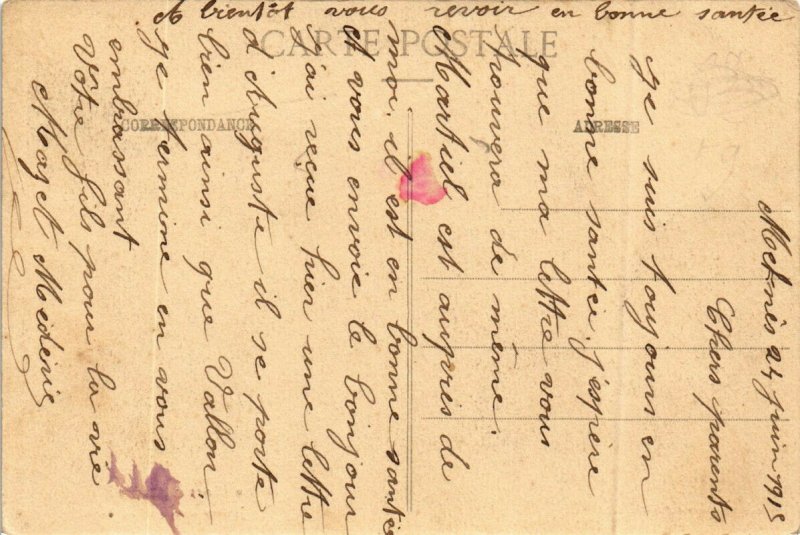 CARTE POSTALE
CORRESPONDANCE
ADRESSE
Meknès 24 Juin 1915
Chers parents
Je suis toujours en
bonne santée. j'espère
que ma lettre vous
trouvera de même.
Martiel est auprès de
moi. il est en bonne santée
et vous envoie le bonjour
j'ai reçue hier une lettre
d'Auguste il se porte
bien ainsi que Vallon.
Je termine en vous
embrassant
Vôtre fils pour la vie
Maget Mederic
A bientôt vous revoir en bonne santée